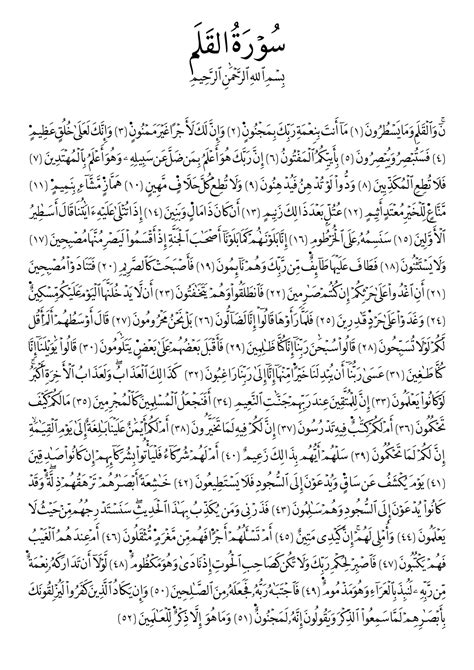 سُورَةُ القَلَمِ
بِسْمِ ٱللَّهِ ٱلرَّحْمَٰنِ ٱلرَّحِيمِ
نٓ وَٱلْقَلَمِ وَمَا يَسْطُرُونَ ﴿١﴾ مَآ أَنتَ بِنِعْمَةِ رَبِّكَ بِمَجْنُونٍ ﴿٢﴾ وَإِنَّ لَكَ لَأَجْرًا غَيْرَ مَمْنُونٍ ﴿٣﴾ وَإِنَّكَ لَعَلَىٰ خُلُقٍ عَظِيمٍ
﴿٤﴾ فَسَتُبْصِرُ وَيُبْصِرُونَ ﴿٥﴾ بِأَييِّكُمُ ٱلْمَفْتُونُ ﴿٦﴾ إِنَّ رَبَّكَ هُوَ أَعْلَمُ بِمَن ضَلَّ عَن سَبِيلِهِۦ وَهُوَ أَعْلَمُ بِٱلْمُهْتَدِينَ ﴿٧﴾
فَلَا تُطِعِ ٱلْمُكَذِّبِينَ ﴿٨﴾ وَدُّوا۟ لَوْ تُدْهِنُ فَيُدْهِنُونَ ﴿٩﴾ وَلَا تُطِعْ كُلَّ حَلَّافٍ مَّهِينٍ ﴿١٠﴾ هَمَّازٍ مَّشَّآءٍۭ بِنَمِيمٍ ﴿١١﴾
مَّنَّاعٍ لِّلْخَيْرِ مُعْتَدٍ أَثِيمٍ ﴿١٢﴾ عُتُلٍّۭ بَعْدَ ذَٰلِكَ زَنِيمٍ ﴿١٣﴾ أَن كَانَ ذَا مَالٍ وَبَنِينَ ﴿١٤﴾ إِذَا تُتْلَىٰ عَلَيْهِ ءَايَٰتُنَا قَالَ أَسَٰطِيرُ
ٱلْأَوَّلِينَ ﴿١٥﴾ سَنَسِمُهُۥ عَلَى ٱلْخُرْطُومِ ﴿١٦﴾ إِنَّا بَلَوْنَٰهُمْ كَمَا بَلَوْنَآ أَصْحَٰبَ ٱلْجَنَّةِ إِذْ أَقْسَمُوا۟ لَيَصْرِمُنَّهَا مُصْبِحِينَ ﴿١٧﴾
وَلَا يَسْتَثْنُونَ ﴿١٨﴾ فَطَافَ عَلَيْهَا طَآئِفٌ مِّن رَّبِّكَ وَهُمْ نَآئِمُونَ ﴿١٩﴾ فَأَصْبَحَتْ كَٱلصَّرِيمِ ﴿٢٠﴾ فَتَنَادَوْا۟ مُصْبِحِينَ
﴿٢١﴾ أَنِ ٱغْدُوا۟ عَلَىٰ حَرْثِكُمْ إِن كُنتُمْ صَٰرِمِينَ ﴿٢٢﴾ فَٱنطَلَقُوا۟ وَهُمْ يَتَخَٰفَتُونَ ﴿٢٣﴾ أَن لَّا يَدْخُلَنَّهَا ٱلْيَوْمَ عَلَيْكُم مِّسْكِينٌ
﴿٢٤﴾ وَغَدَوْا۟ عَلَىٰ حَرْدٍ قَٰدِرِينَ ﴿٢٥﴾ فَلَمَّا رَأَوْهَا قَالُوٓا۟ إِنَّا لَضَآلُّونَ ﴿٢٦﴾ بَلْ نَحْنُ مَحْرُومُونَ ﴿٢٧﴾ قَالَ أَوْسَطُهُمْ أَلَمْ أَقُل
لَّكُمْ لَوْلَا تُسَبِّحُونَ ﴿٢٨﴾ قَالُوا۟ سُبْحَٰنَ رَبِّنَآ إِنَّا كُنَّا ظَٰلِمِينَ ﴿٢٩﴾ فَأَقْبَلَ بَعْضُهُمْ عَلَىٰ بَعْضٍ يَتَلَٰوَمُونَ ﴿٣٠﴾ قَالُوا۟ يَٰوَيْلَنَآ إِنَّا
كُنَّا طَٰغِينَ ﴿٣١﴾ عَسَىٰ رَبُّنَآ أَن يُبْدِلَنَا خَيْرًا مِّنْهَآ إِنَّآ إِلَىٰ رَبِّنَا رَٰغِبُونَ ﴿٣٢﴾ كَذَٰلِكَ ٱلْعَذَابُ ۖ وَلَعَذَابُ ٱلْءَاخِرَةِ أَكْبَرُ ۚ
لَوْ كَانُوا۟ يَعْلَمُونَ ﴿٣٣﴾ إِنَّ لِلْمُتَّقِينَ عِندَ رَبِّهِمْ جَنَّٰتِ ٱلنَّعِيمِ ﴿٣٤﴾ أَفَنَجْعَلُ ٱلْمُسْلِمِينَ كَٱلْمُجْرِمِينَ ﴿٣٥﴾ مَا لَكُمْ كَيْفَ
تَحْكُمُونَ ﴿٣٦﴾ أَمْ لَكُمْ كِتَٰبٌ فِيهِ تَدْرُسُونَ ﴿٣٧﴾ إِنَّ لَكُمْ فِيهِ لَمَا تَخَيَّرُونَ ﴿٣٨﴾ أَمْ لَكُمْ أَيْمَٰنٌ عَلَيْنَا بَٰلِغَةٌ إِلَىٰ يَوْمِ ٱلْقِيَٰمَةِ ۙ
إِنَّ لَكُمْ لَمَا تَحْكُمُونَ ﴿٣٩﴾ سَلْهُمْ أَيُّهُم بِذَٰلِكَ زَعِيمٌ ﴿٤٠﴾ أَمْ لَهُمْ شُرَكَآءُ فَلْيَأْتُوا۟ بِشُرَكَآئِهِمْ إِن كَانُوا۟ صَٰدِقِينَ
﴿٤١﴾ يَوْمَ يُكْشَفُ عَن سَاقٍ وَيُدْعَوْنَ إِلَى ٱلسُّجُودِ فَلَا يَسْتَطِيعُونَ ﴿٤٢﴾ خَٰشِعَةً أَبْصَٰرُهُمْ تَرْهَقُهُمْ ذِلَّةٌ ۖ وَقَدْ
كَانُوا۟ يُدْعَوْنَ إِلَى ٱلسُّجُودِ وَهُمْ سَٰلِمُونَ ﴿٤٣﴾ فَذَرْنِى وَمَن يُكَذِّبُ بِهَٰذَا ٱلْحَدِيثِ ۖ سَنَسْتَدْرِجُهُم مِّنْ حَيْثُ لَا
يَعْلَمُونَ ﴿٤٤﴾ وَأُمْلِى لَهُمْ ۚ إِنَّ كَيْدِى مَتِينٌ ﴿٤٥﴾ أَمْ تَسْـَٔلُهُمْ أَجْرًا فَهُم مِّن مَّغْرَمٍ مُّثْقَلُونَ ﴿٤٦﴾ أَمْ عِندَهُمُ ٱلْغَيْبُ
فَهُمْ يَكْتُبُونَ ﴿٤٧﴾ فَٱصْبِرْ لِحُكْمِ رَبِّكَ وَلَا تَكُن كَصَاحِبِ ٱلْحُوتِ إِذْ نَادَىٰ وَهُوَ مَكْظُومٌ ﴿٤٨﴾ لَّوْلَآ أَن تَدَٰرَكَهُۥ نِعْمَةٌ
مِّن رَّبِّهِۦ لَنُبِذَ بِٱلْعَرَآءِ وَهُوَ مَذْمُومٌ ﴿٤٩﴾ فَٱجْتَبَٰهُ رَبُّهُۥ فَجَعَلَهُۥ مِنَ ٱلصَّٰلِحِينَ ﴿٥٠﴾ وَإِن يَكَادُ ٱلَّذِينَ كَفَرُوا۟ لَيُزْلِقُونَكَ
بِأَبْصَٰرِهِمْ لَمَّا سَمِعُوا۟ ٱلذِّكْرَ وَيَقُولُونَ إِنَّهُۥ لَمَجْنُونٌ ﴿٥١﴾ وَمَا هُوَ إِلَّا ذِكْرٌ لِّلْعَٰلَمِينَ ﴿٥٢﴾